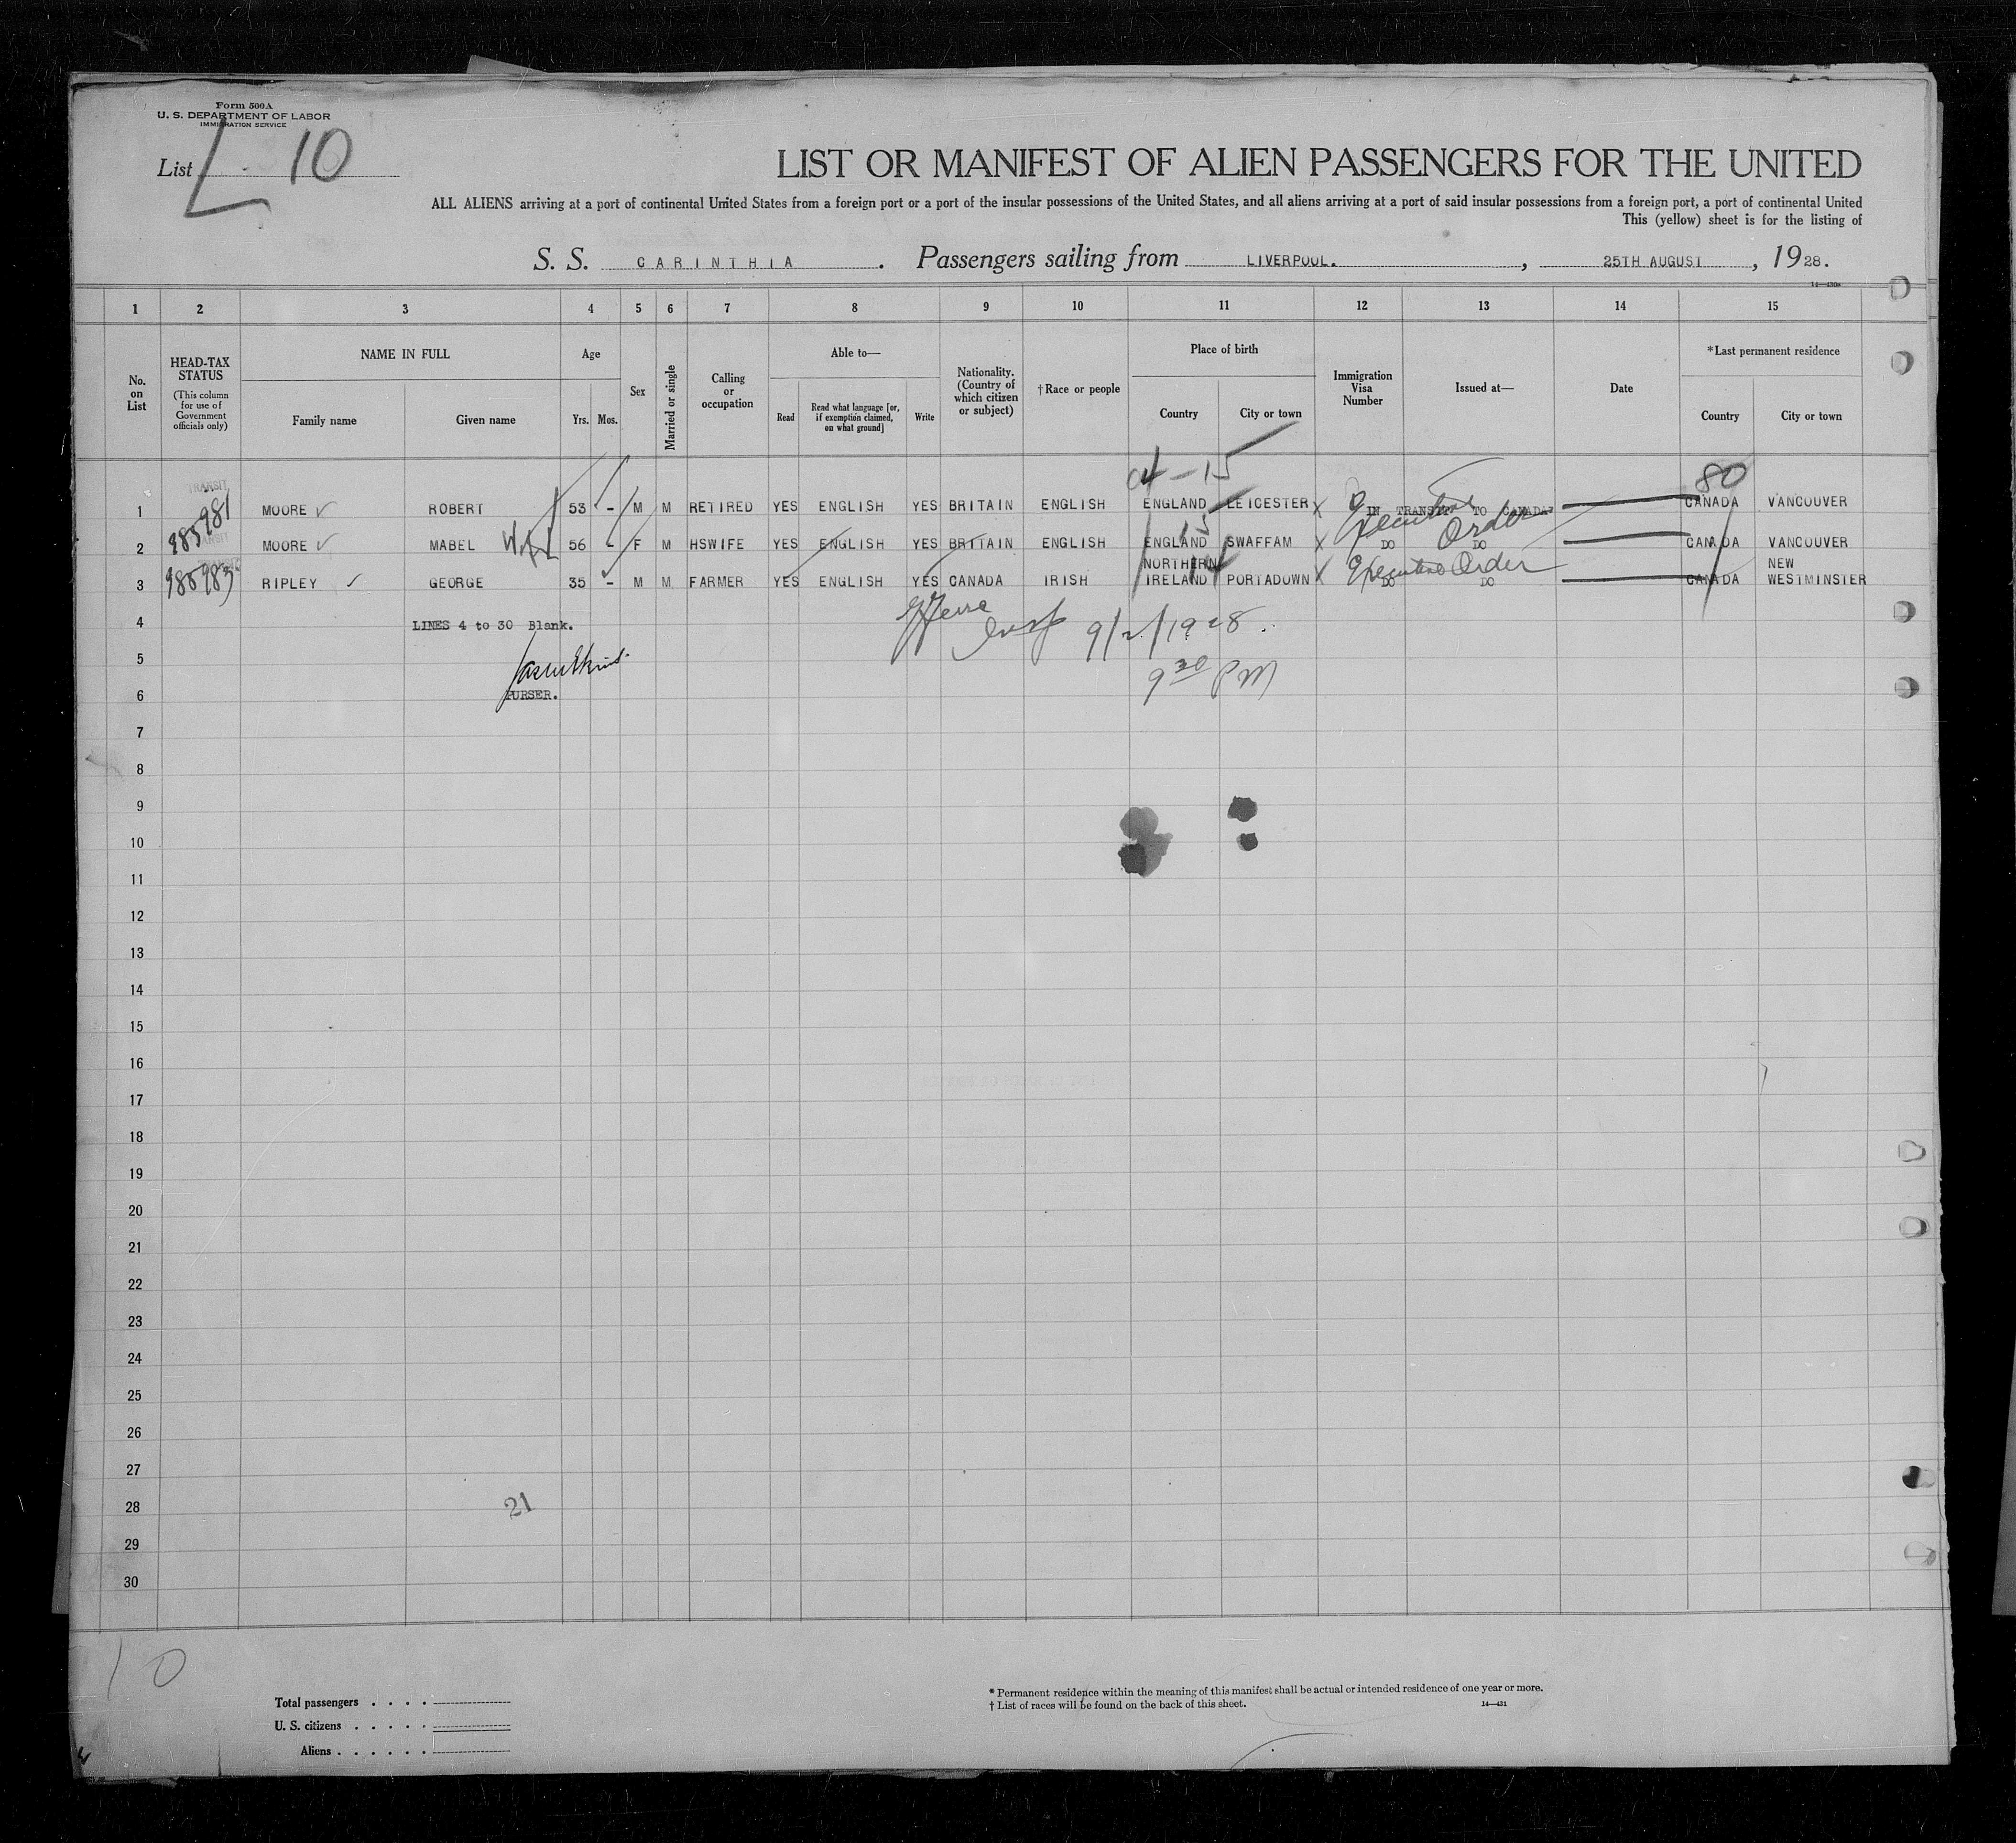 Form 500A
U. S. DEPARTMENT OF LABOR
IMMIGRATION SERVICE
List 10
LIST OR MANIFEST OF ALIEN PASSENGERS FOR THE UNITED
ALL ALIENS arriving at a port of continental United States from a foreign port or a port of the insular possessions of the United States, and all aliens arriving at a port of said insular possessions from a foreign port, a port of continental United
This (yellow) sheet is for the listing of
S. S. CARINTHIA . Passengers sailing from LIVERPOOL. , 25TH AUGUST , 1928.
14—430a
1 2 3 4 5 6 7 8 9 10 11 12 13 14 15
No. on List
HEAD-TAX STATUS
(This column for use of Government officials only)
NAME IN FULL
Family name
Given name
Age
Yrs.
Mos.
Sex
Married or single
Calling or occupation
Able to—
Read
Read what language [or, if exemption claimed, on what ground]
Write
Nationality. (Country of which citizen or subject)
†Race or people
Place of birth
Country
City or town
Immigration Visa Number
Issued at—
Date
*Last permanent residence
Country
City or town
80
TRANSIT
1 MOORE ROBERT 53 - M M RETIRED YES ENGLISH YES BRITAIN ENGLISH ENGLAND LEICESTER IN TRANSIT TO CANADA CANADA VANCOUVER
Executive Order
2 MOORE MABEL Wife 56 - F M HSWIFE YES ENGLISH YES BRITAIN ENGLISH ENGLAND SWAFFAM DO DO CANADA VANCOUVER
3 985983 RIPLEY GEORGE 35 - M M FARMER YES ENGLISH YES CANADA IRISH NORTHERN IRELAND PORTADOWN DO DO Executive Order CANADA NEW WESTMINSTER
4 LINES 4 to 30 Blank.
Insp 9/2/1928.
5
9 30 PM
6 PURSER.
7
8
9
10
11
12
13
14
15
16
17
18
19
20
21
22
23
24
25
26
27
28 21
29
30
10
Total passengers . . . .
U. S. citizens . . . . .
Aliens . . . . . .
* Permanent residence within the meaning of this manifest shall be actual or intended residence of one year or more.
† List of races will be found on the back of this sheet. 14—431